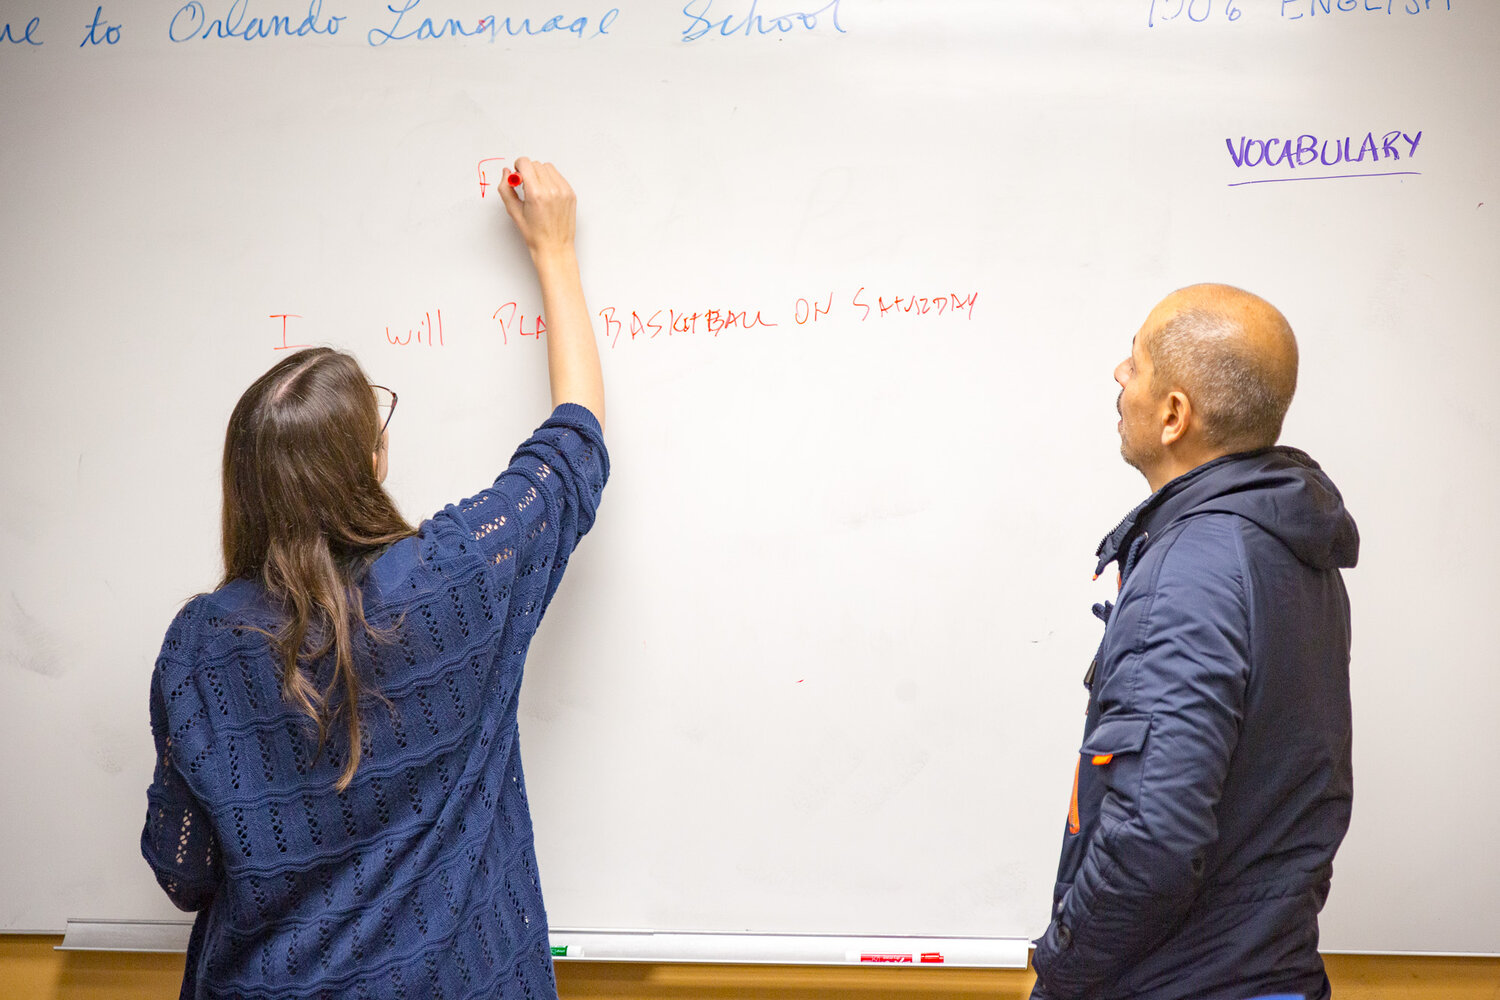 to Orlando Language School
100% ENGLISH
VOCABULARY
F
I will PLA BASKETBALL ON SATURDAY